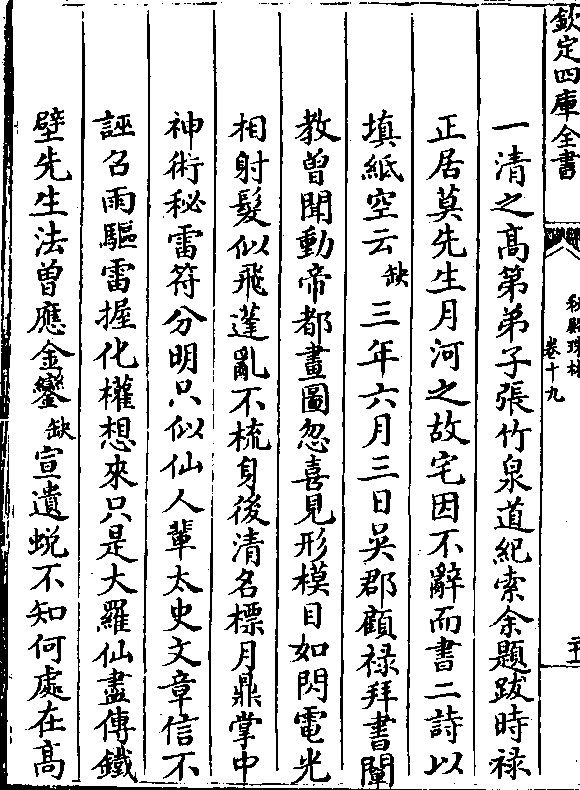 欽定四庫全書
秘殿珠林
卷十九
一清之高第弟子張竹泉道紀索余題跋時祿
正居莫先生月河之故宅因不辭而書二詩以
填紙空云缺三年六月三日吳郡顧祿拜書闡
教曾聞動帝都畫圖忽喜見形模目如閃電光
相射髮似飛蓬亂不梳身後清名標月鼎掌中
神術秘雷符分明只似仙人輩太史文章信不
誣召雨驅雷握化權想來只是大羅仙盡傳鐵
壁先生法曾應金鑾缺宣遺蛻不知何處在高